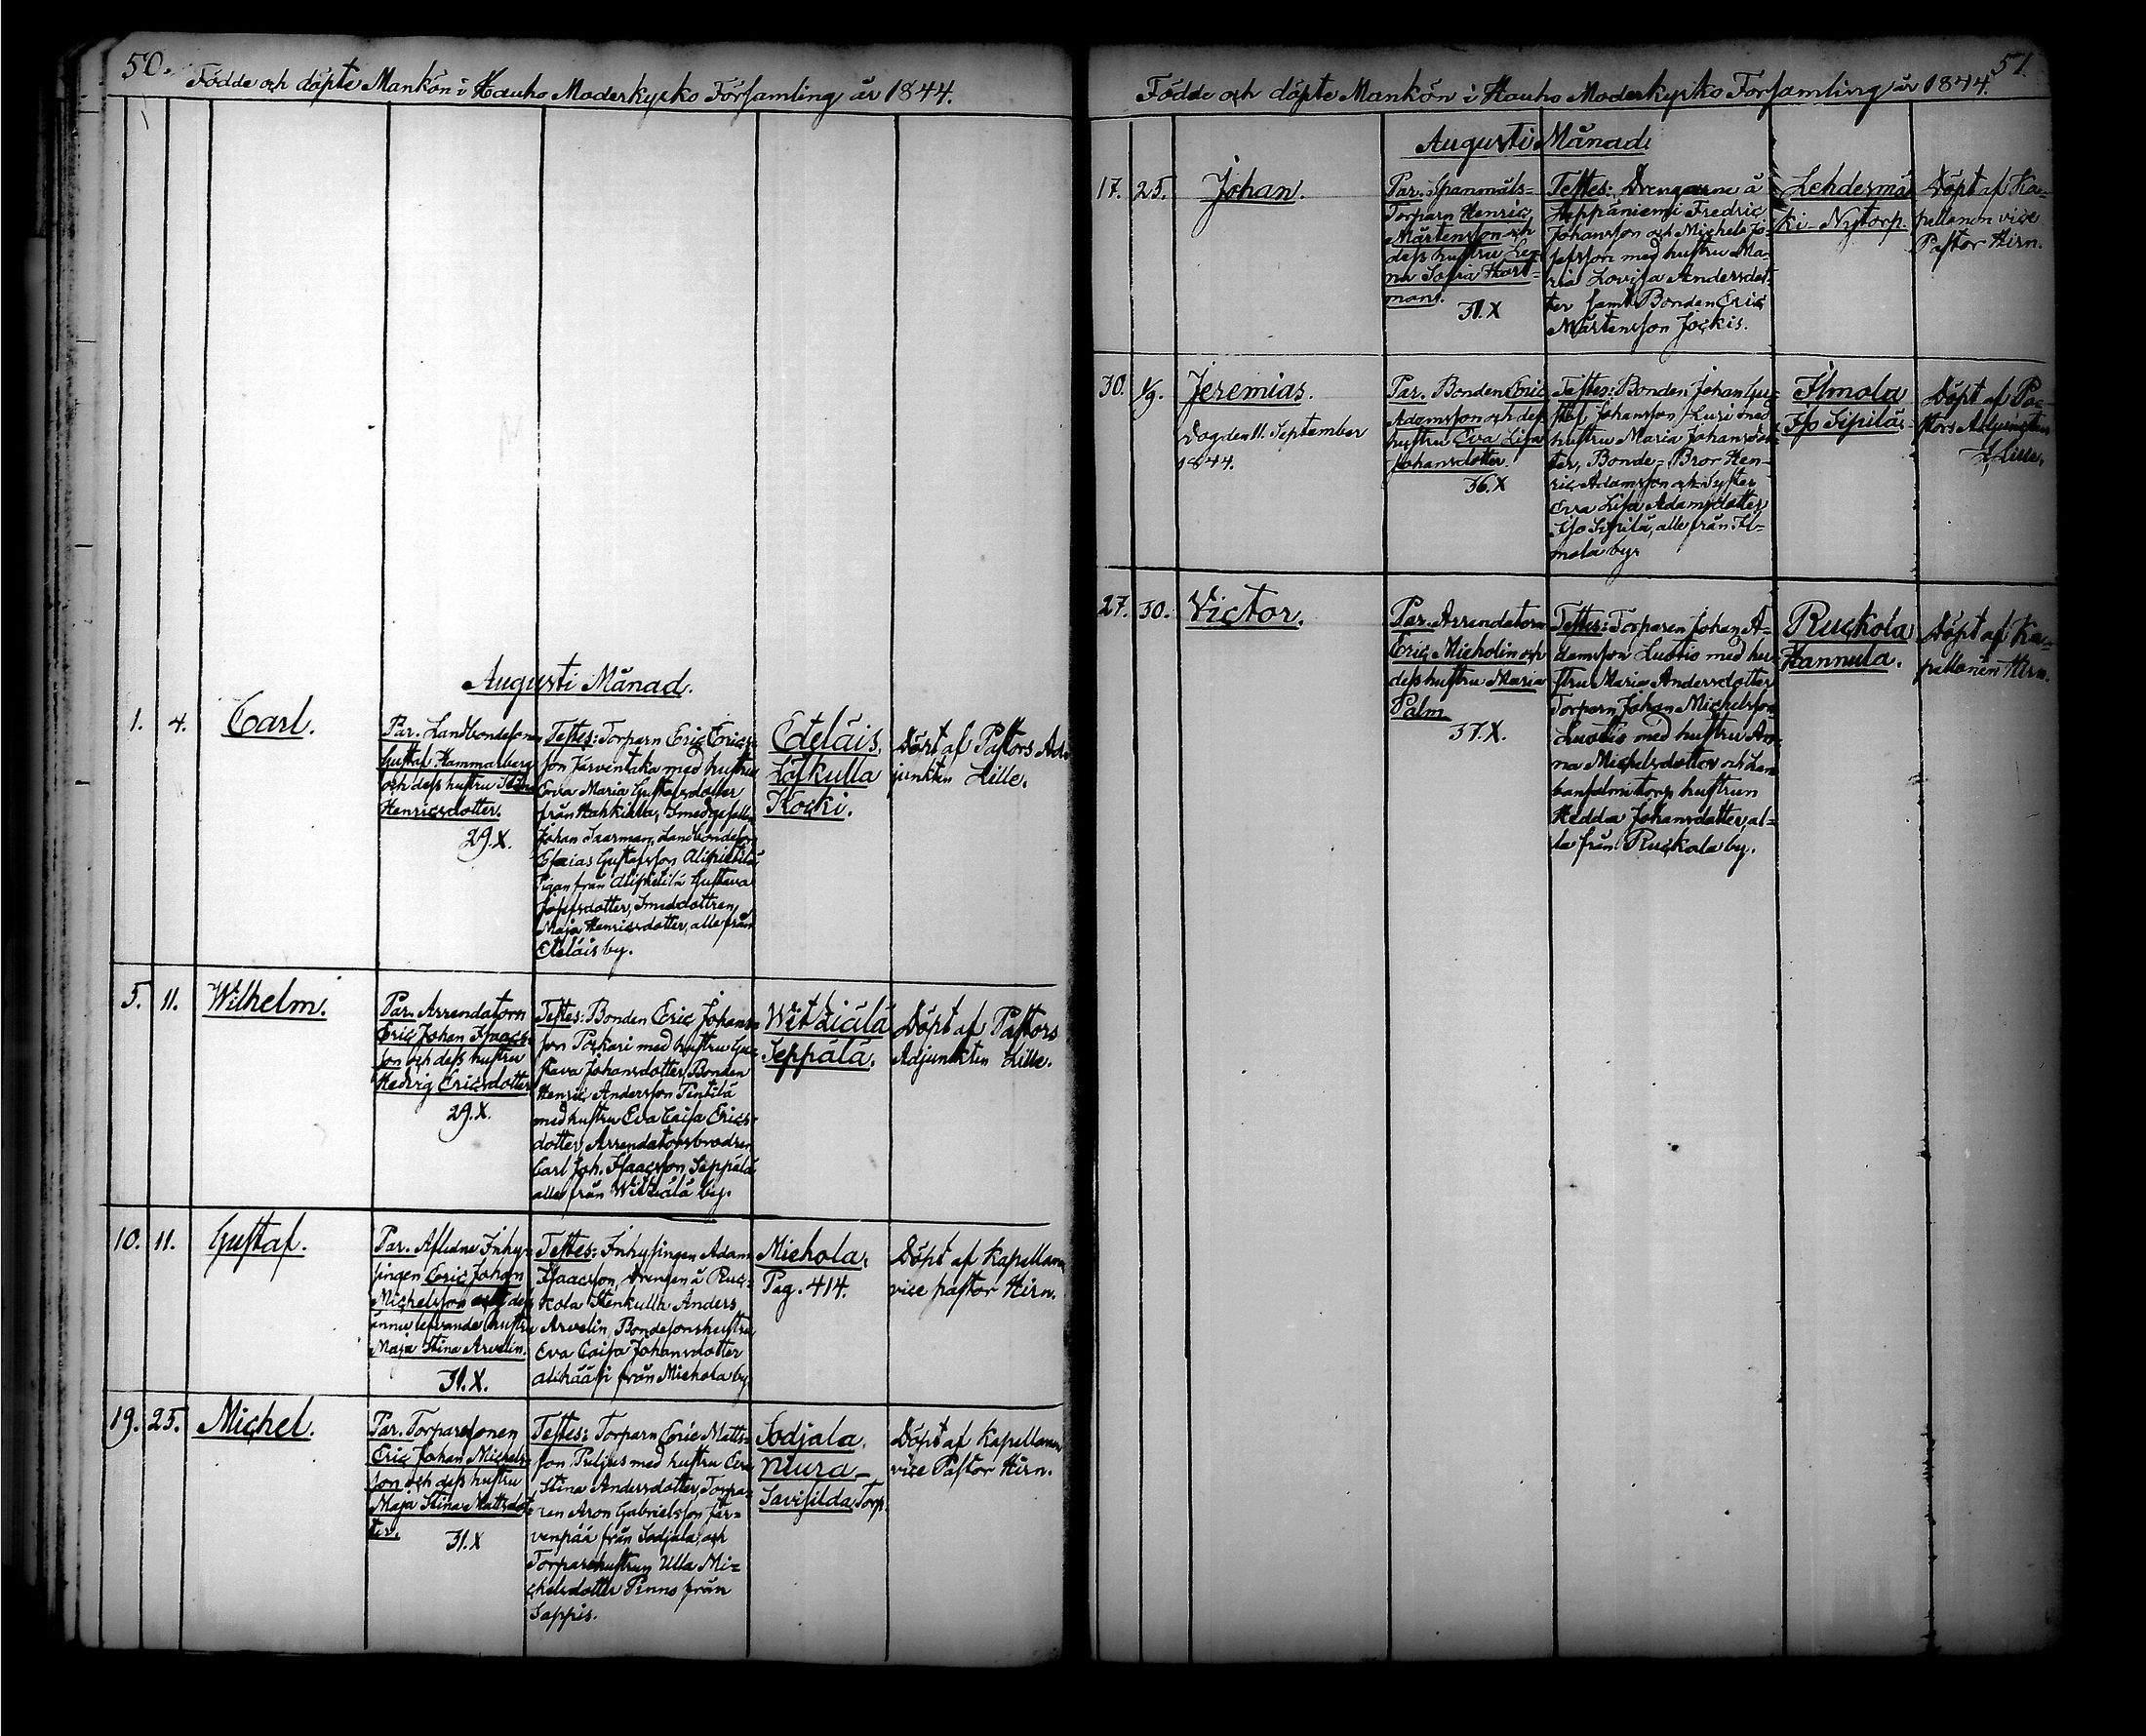 50.
Födde och döpte Mankön i Hauho Moderkyrko Församling år 1844.
Augusti Månad.
1.
4.
Carl.
Par. Landbondeson
Gustaf Hammarberg
och dess hustru Stina
Henricsdotter.
29.X.
Testes: Torparn Eric Erics-
son Järventaka med hustru
Eva Maria Gustafsdotter
från Hahkiala, Smedgesällen
Johan Saarman, Landbondeson
Esaias Gustafsson Alipietilä
Pigan från Alipietilä Gustava
Josefsdotter, Smeddottren
Maja Henricsdotter, alle från
Eteläis by.
Eteläis,
Löfkulla
Kocki.
Döpt af Pastors Ad-
junkten Lille.
5.
11.
Wilhelm.
Par. Arrendatorn
Eric Johan Isaacs-
son och dess hustru
Hedvig Ericsdotter
29.X.
Testes: Bonden Eric Johans-
son Porkari med hustru Gu-
stava Johansdotter, Bonden
Henric Andersson Penttilä
med hustru Eva Caisa Erics-
dotter, Arrendatorsbrodren
Carl Joh. Isaacsson Seppälä
alle från Witziälä by.
Witziälä
Seppälä.
Döpt af Pastors
Adjunkten Lille.
10.
11.
Gustaf.
Par. Aflidne Inhy-
singen Eric Johan
Michelsson och des
ännu lefvande hustru
Maja Stina Arvelin.
31.X.
Testes: Inhysingen Adam
Isaacsson, Drengen å Ruc-
kola Stenkulla Anders
Arvelin, Bondesonshustru
Eva Caisa Johansdotter
Alihääsi från Miehola by
Miehola.
Pag. 414.
Döpt af Kapellanen
vice pastor Hirn.
19.
25.
Michel.
Par. Torparesonen
Eric Johan Michels-
son och dess hustru
Maja Stina Mattsdot-
ter.
31.X
Testes: Torparn Eric Matts-
son Puljus med hustru Eva
Stina Andersdotter, Torpa-
ren Aron Gabrielsson Jär-
venpää från Sodjala, och
Torparehustrun Ulla Mi-
chelsdotter Pinno från
Sappis.
Sodjala.
Niura-
Savisilda Torp.
Döpt af Kapellanen
vice Pastor Hirn.
51.
Födde och döpte Mankön i Hauho Moderkyrko Församling år 1844.
Augusti Månad.
17.
25.
Johan.
Par. Spanmåls-
Torparn Henric
Mårtensson och
dess hustru Le-
na Sofia Hart-
man.
31.X
Testes: Drengarne å
Heppäniemi Fredric
Johansson och Michel Jo-
sefsson med hustru Ma-
ria Lovisa Andersdot-
ter samt Bonden Eric
Mårtensson Jockis.
Lehdesmä-
ki-Nytorp.
Döpt af Ka-
pellanen vice
Pastor Hirn.
30.
1/9.
Jeremias.
Dog den 11. September
1844.
Par. Bonden Eric
Adamsson och dess
hustru Eva Lisa
Johansdotter.
36.X
Testes: Bonden Johan Gu-
staf Johansson Lusi med
hustru Maria Johansdot-
ter, Bonde-Bror Hen-
ric Adamsson och Syster
Eva Lisa Adamsdotter
Iso Sipilä, alle från Il-
mola by.
Ilmola
Iso Sipilä.
Döpt af Pa-
stors Adjunkten
Lille.
27.
30.
Victor.
Par. Arrendatorn
Eric Micholin och
dess hustru Maria
Palm
37.X.
Testes: Torparen Johan A-
damsson Luotio med hu-
stru Maria Andersdotter
Torparn Johan Michelsson
Luotio med hustru An-
na Michelsdotter och
torp hustrun
Hedda Johansdotter, al-
la från Ruckola by.
Ruckola
Hannula.
Döpt af Ka-
pellanen Hirn.